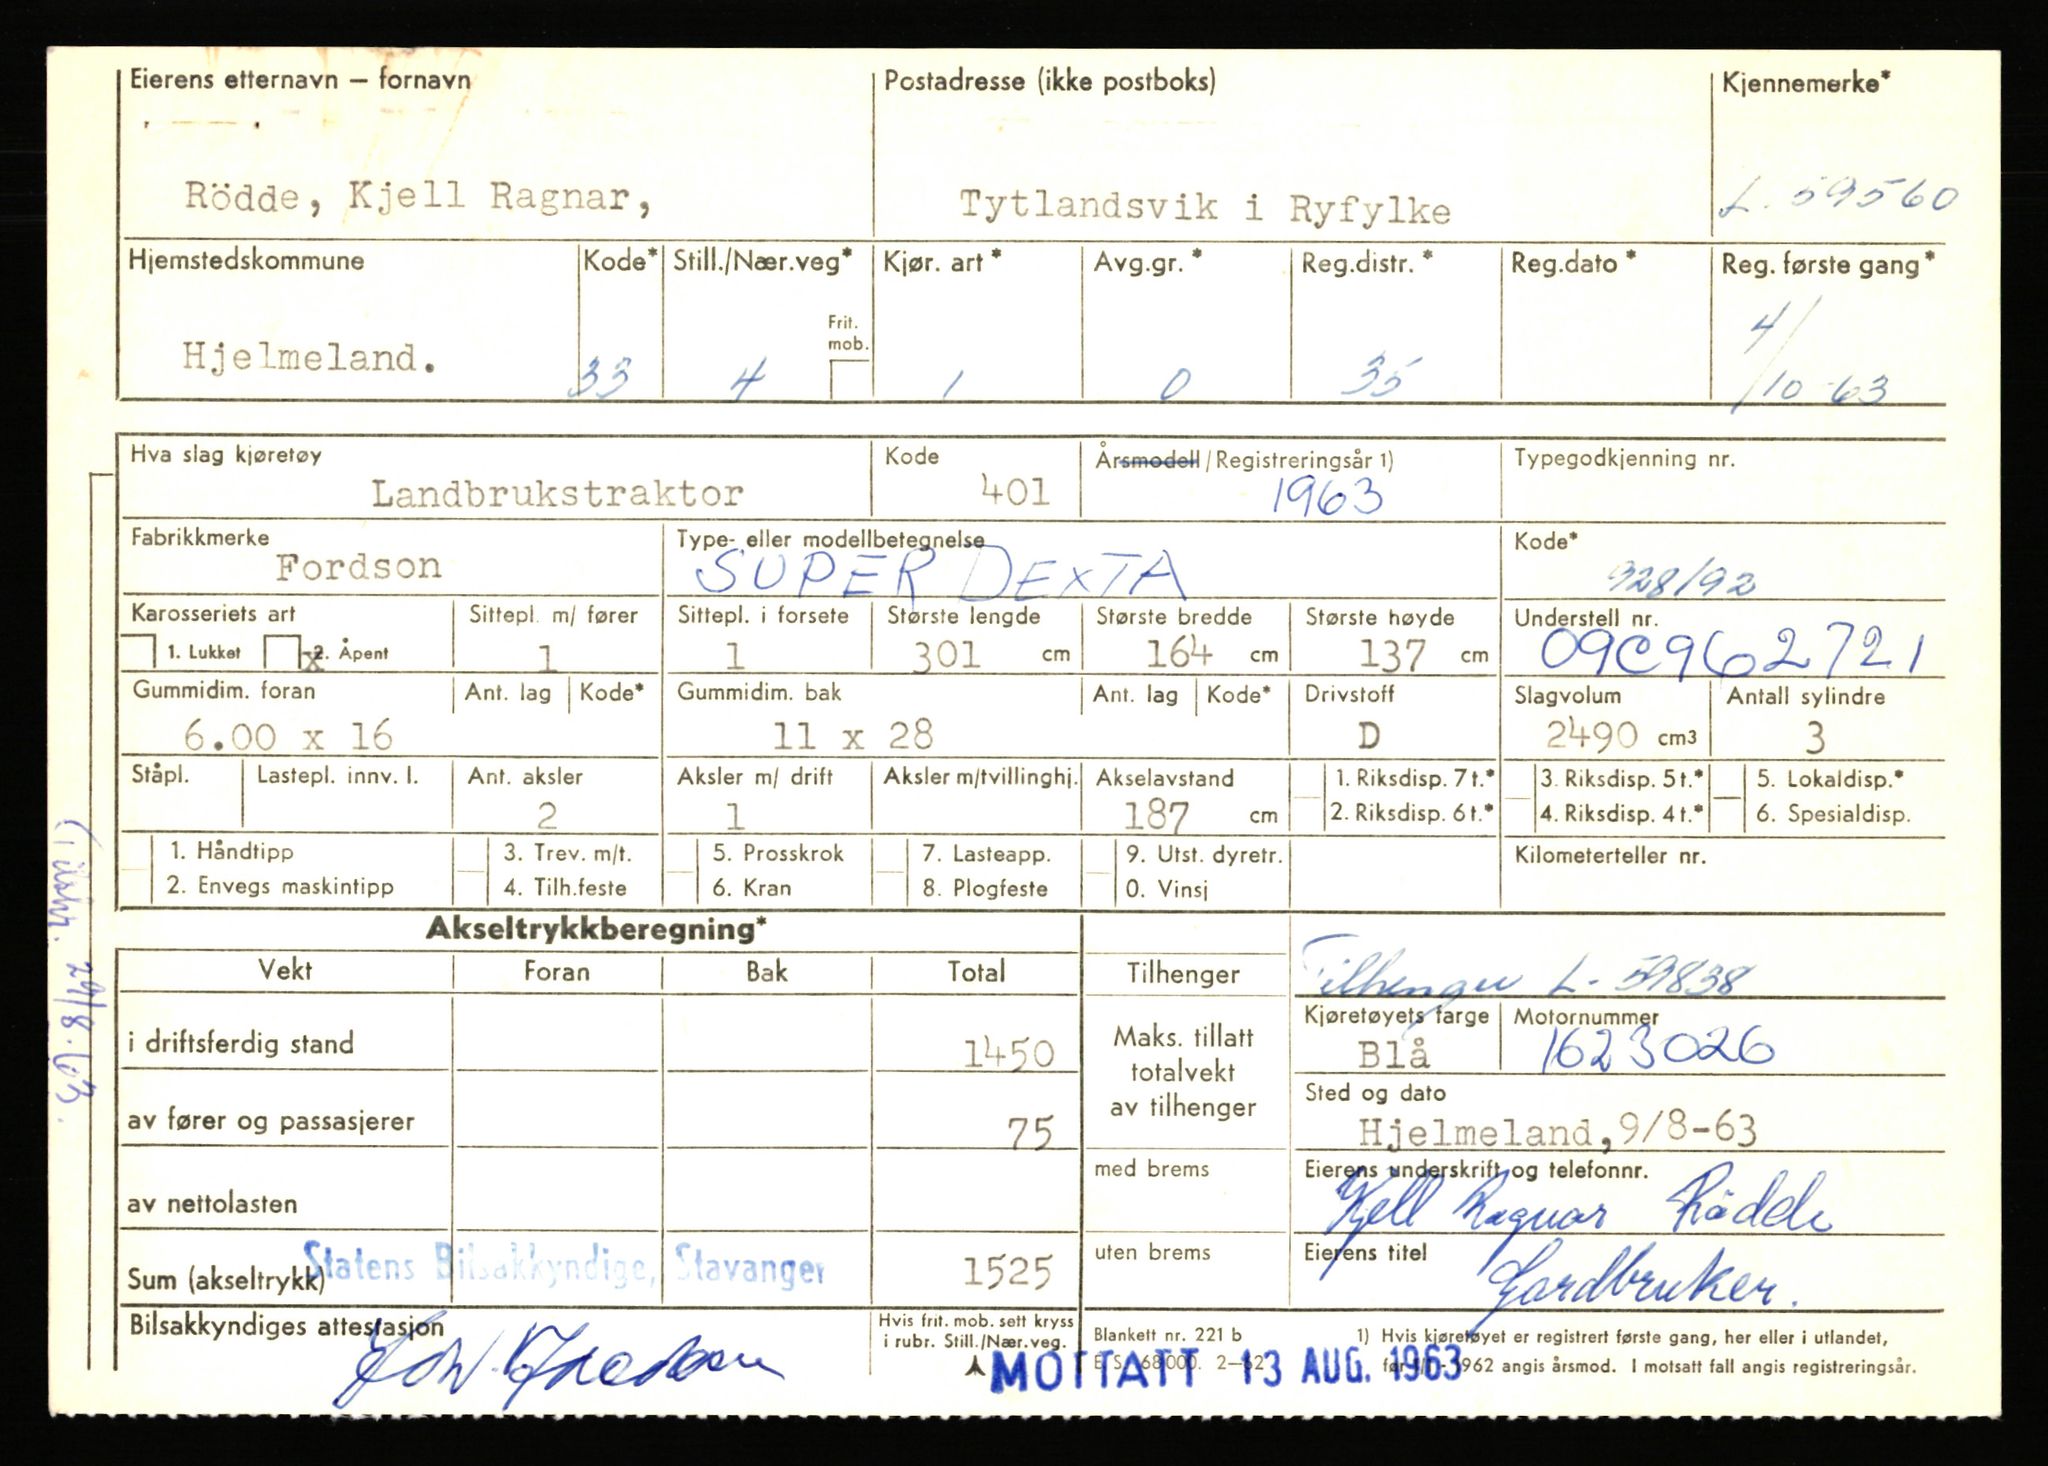 Eierens etternavn – fornavn Postadresse (ikke postboks) Kjennemerke*
Rödde, Kjell Ragnar, Tytlandsvik i Ryfylke L. 59560
Hjemstedskommune Kode* Still./Nær.veg* Kjør. art* Avg.gr.* Reg.distr.* Reg.dato* Reg. første gang*
Frit. mob.
Hjelmeland. 33 4 1 0 35 4/10-63
Hva slag kjøretøy Kode Årsmodell/Registreringsår 1) Typegodkjenning nr.
Landbrukstraktor 401 1963
Fabrikkmerke Type- eller modellbetegnelse Kode*
Fordson SUPER DEXTA 928/92
Karosseriets art Sittepl. m/ fører Sittepl. i forsete Største lengde Største bredde Største høyde Understell nr.
1. Lukket x 2. Åpent 1 1 301 cm 164 cm 137 cm 09C962721
Gummidim. foran Ant. lag Kode* Gummidim. bak Ant. lag Kode* Drivstoff Slagvolum Antall sylindre
6.00 x 16 11 x 28 D 2490 cm3 3
Ståpl. Lastepl. innv. l. Ant. aksler Aksler m/ drift Aksler m/tvillinghj. Akselavstand 1. Riksdisp. 7 t.* 3. Riksdisp. 5 t.* 5. Lokaldisp.*
2 1 187 cm 2. Riksdisp. 6 t.* 4. Riksdisp. 4 t.* 6. Spesialdisp.
1. Håndtipp 3. Trev. m/t. 5. Prosskrok 7. Lasteapp. 9. Utst. dyretr. Kilometerteller nr.
2. Envegs maskintipp 4. Tilh.feste 6. Kran 8. Plogfeste 0. Vinsj
Akseltrykkberegning*
Vekt Foran Bak Total Tilhenger Tilhenger L-59838
Kjøretøyets farge Motornummer
i driftsferdig stand 1450 Maks. tillatt totalvekt av tilhenger Blå 1623026
Sted og dato
av fører og passasjerer 75 Hjelmeland, 9/8-63
med brems Eierens underskrift og telefonnr.
av nettolasten Kjell Ragnar Rödde
uten brems Eierens titel
Sum (akseltrykk) Statens Bilsakkyndige, Stavanger 1525 Gardbruker.
Bilsakkyndiges attestasjon Hvis frit. mob. sett kryss i rubr. Still./Nær.veg. Blankett nr. 221 b 1) Hvis kjøretøyet er registrert første gang, her eller i utlandet,
68000. 2–62 før 1/1-1962 angis årsmod. I motsatt fall angis registreringsår.
MOTTATT 13 AUG. 1963
29/8.63.